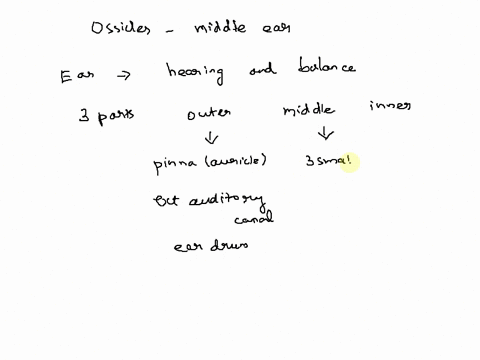 Ossicles - middle ear
Ear → hearing and balance
3 parts outer middle inner
↓ ↓
pinna (auricle) 3 smal
Ext auditory
canal
ear drum